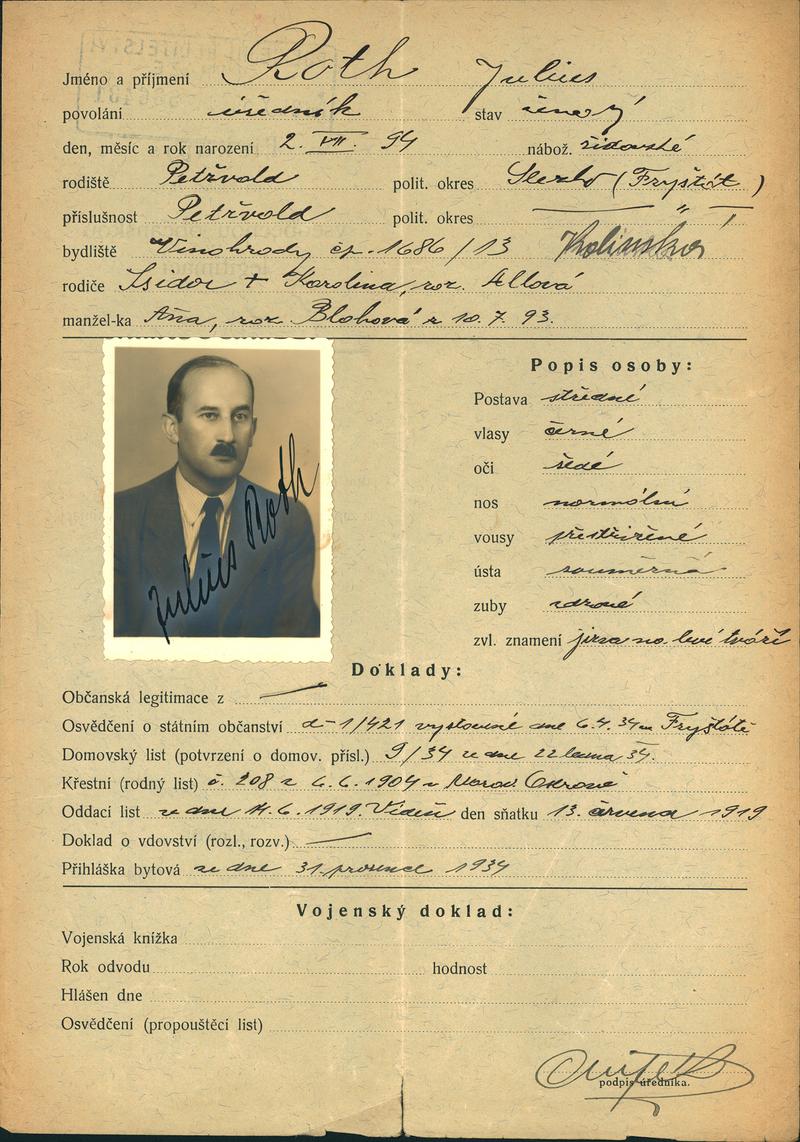 Jméno a příjmení Roth Julius
povolání úředník stav ženatý
den, měsíc a rok narození 2. VII. 94 nábož. židovské
rodiště Petřvald polit. okres Slezko (Fryštát)
příslušnost Petřvald polit. okres — " —
bydliště Vinohrady čp. 1686/13 Kolínská
rodiče Isidor + Karolina, roz. Allová
manžel-ka Aňa, roz. Blohová 10. 7. 93.
Popis osoby:
Postava střední
vlasy černé
oči šedé
nos normální
vousy přistřižené
ústa souměrná
zuby zdravé
zvl. znamení jizva na levé tváři
Julius Roth
Doklady:
Občanská legitimace z —
Osvědčení o státním občanství d-1/421 vystavené dne 6.4.34 Fryštátě
Domovský list (potvrzení o domov. přísl.) 9/34 ze dne 22 ledna 34.
Křestní (rodný list) č. 208 z 6.6.1904 v Morav. Ostravě
Oddací list ze dne 14.6.1919. Vídeň den sňatku 13. června 1919
Doklad o vdovství (rozl., rozv.) —
Přihláška bytová ze dne 31. prosince 1934
Vojenský doklad:
Vojenská knížka
Rok odvodu hodnost
Hlášen dne
Osvědčení (propouštěcí list)
podpis úředníka.